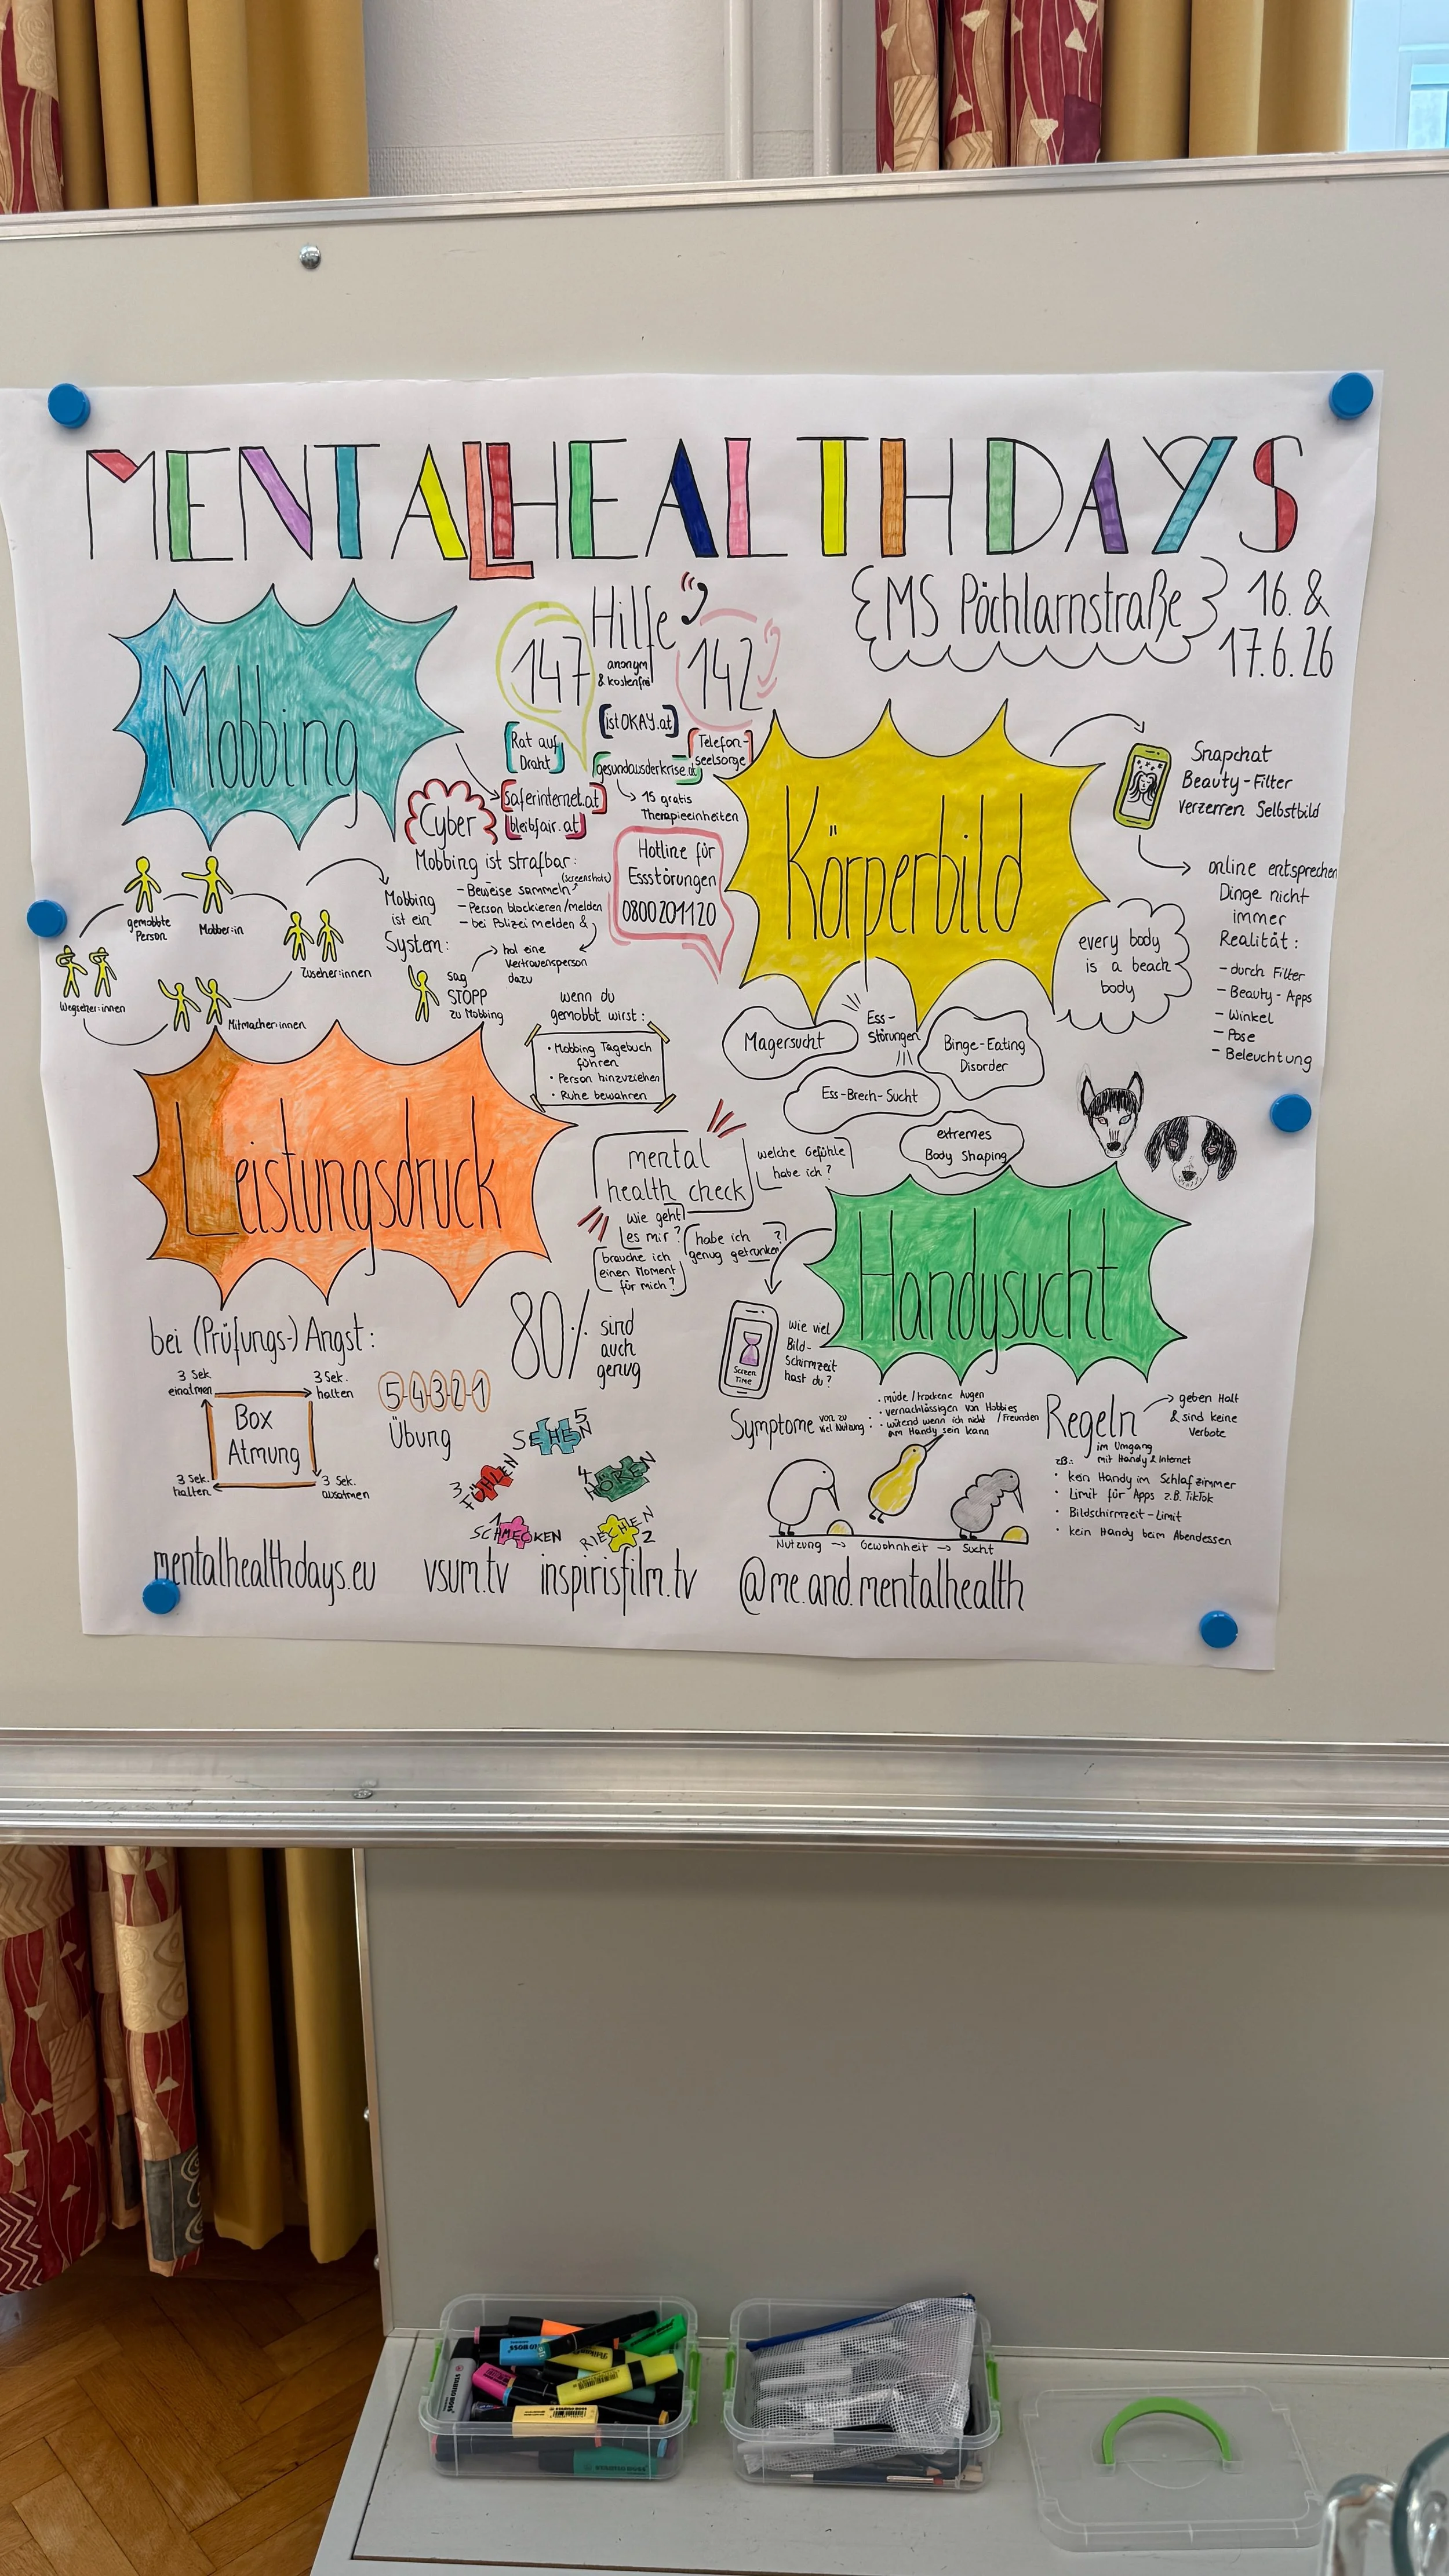 MENTAL HEALTH DAYS
{MS Pöchlarnstraße}
16. &
17.6.26
Mobbing
Hilfe
147
anonym
& kostenfrei
142
[Rat auf
Draht]
[istOKAY.at]
[Telefon-
seelsorge]
[gesundausderkrise.at]
15 gratis
Therapieeinheiten
Cyber
[saferinternet.at]
[bleibfair.at]
Mobbing ist strafbar:
- Beweise sammeln (Screenshots)
- Person blockieren/melden
- bei Polizei melden &
hol eine
Vertrauensperson
dazu
Hotline für
Essstörungen
0800201120
gemobbte
Person
Mobber:in
Zuseher:innen
Mitmacher:innen
Wegseher:innen
Mobbing
ist ein
System:
sag
STOPP
zu Mobbing
wenn du
gemobbt wirst:
• Mobbing Tagebuch
führen
• Person hinzuziehen
• Ruhe bewahren
Körperbild
Snapchat
Beauty-Filter
verzerren Selbstbild
online entsprechen
Dinge nicht
immer
Realität:
- durch Filter
- Beauty-Apps
- Winkel
- Pose
- Beleuchtung
every body
is a beach
body
Ess-
Störungen
Magersucht
Binge-Eating
Disorder
Ess-Brech-Sucht
extremes
Body Shaping
Leistungsdruck
mental
health check
welche Gefühle
habe ich?
wie geht
es mir?
habe ich
genug getrunken?
brauche ich
einen Moment
für mich?
80% sind
auch
genug
bei (Prüfungs-) Angst:
3 Sek.
einatmen
3 Sek.
halten
Box
Atmung
3 Sek.
halten
3 Sek.
ausatmen
5-4-3-2-1
Übung
5
SEHEN
4
HÖREN
3
FÜHLEN
RIECHEN
2
1
SCHMECKEN
Handysucht
Screen
Time
wie viel
Bild-
schirmzeit
hast du?
Symptome von zu
viel Nutzung:
• müde/trockene Augen
• vernachlässigen von Hobbies
/Freunden
• wütend wenn ich nicht
am Handy sein kann
Nutzung → Gewohnheit → Sucht
Regeln
im Umgang
mit Handy & Internet
geben Halt
& sind keine
Verbote
z.B.:
• kein Handy im Schlafzimmer
• Limit für Apps z.B. TikTok
• Bildschirmzeit-Limit
• kein Handy beim Abendessen
mentalhealthdays.eu vsum.tv inspirisfilm.tv @me.and.mentalhealth
STABILO BOSS